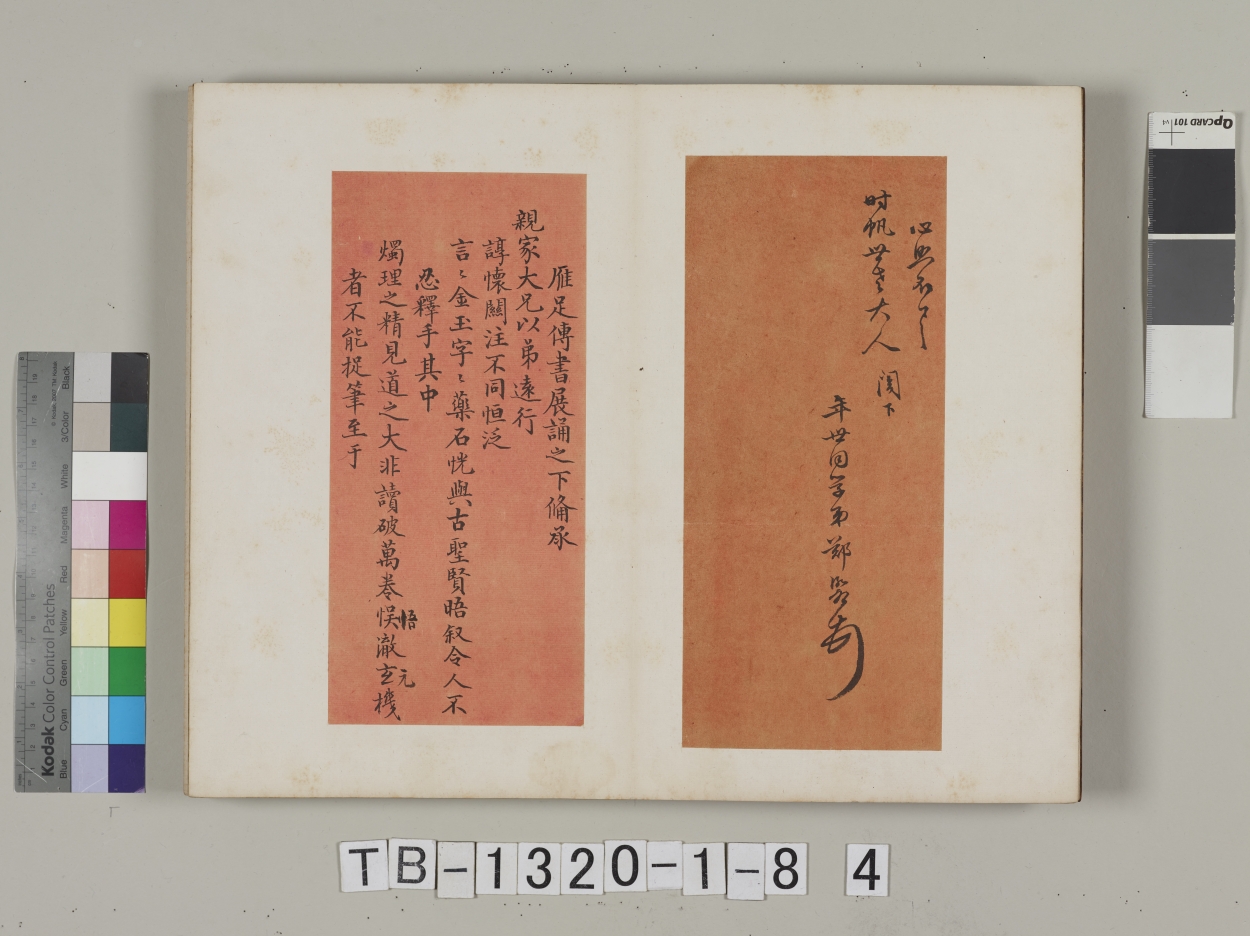 心照不
时帆世大人 阁下
年世同學弟鄭
雁足傳書展誦之下俻承
親家大兄以弟遠行
諄懷關注不同恒泛
言〻金玉字〻藥石恍與古聖賢晤叙令人不
忍釋手其中
燭理之精見道之大非讀破萬卷悞澈玄機
悟
元
者不能捉筆至于
QpCARD 101 v4
Kodak Color Control Patches
© Kodak, 2007, TM: Kodak
Blue Cyan Green Yellow Red Magenta White 3/Color Black
TB-1320-1-8 4